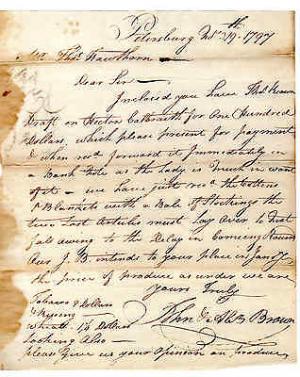 Petersburg 19th 1797
Mr Thos Hawthorn
Dear Sir
Inclosed you have Thos
Draft on Hector for One Hundred
Dollars, which please present for payment
& when recd forward it Immediately in
a Bank Note as the Lady is Much in want
of it – we have just recd the
& Blankets with a Bale of Stockings the
two Last Articles must Lay over to Next
fall owing to the Delay in Comeing Round
Our J. B. intends to your place in Jany
the price of produce as under we are
Yours Truly
Tobacco 4 dollars
& Ryeing
Wheat Dollars
Looking Also
please Give us your Opinion on produce
John & Alexr Brown